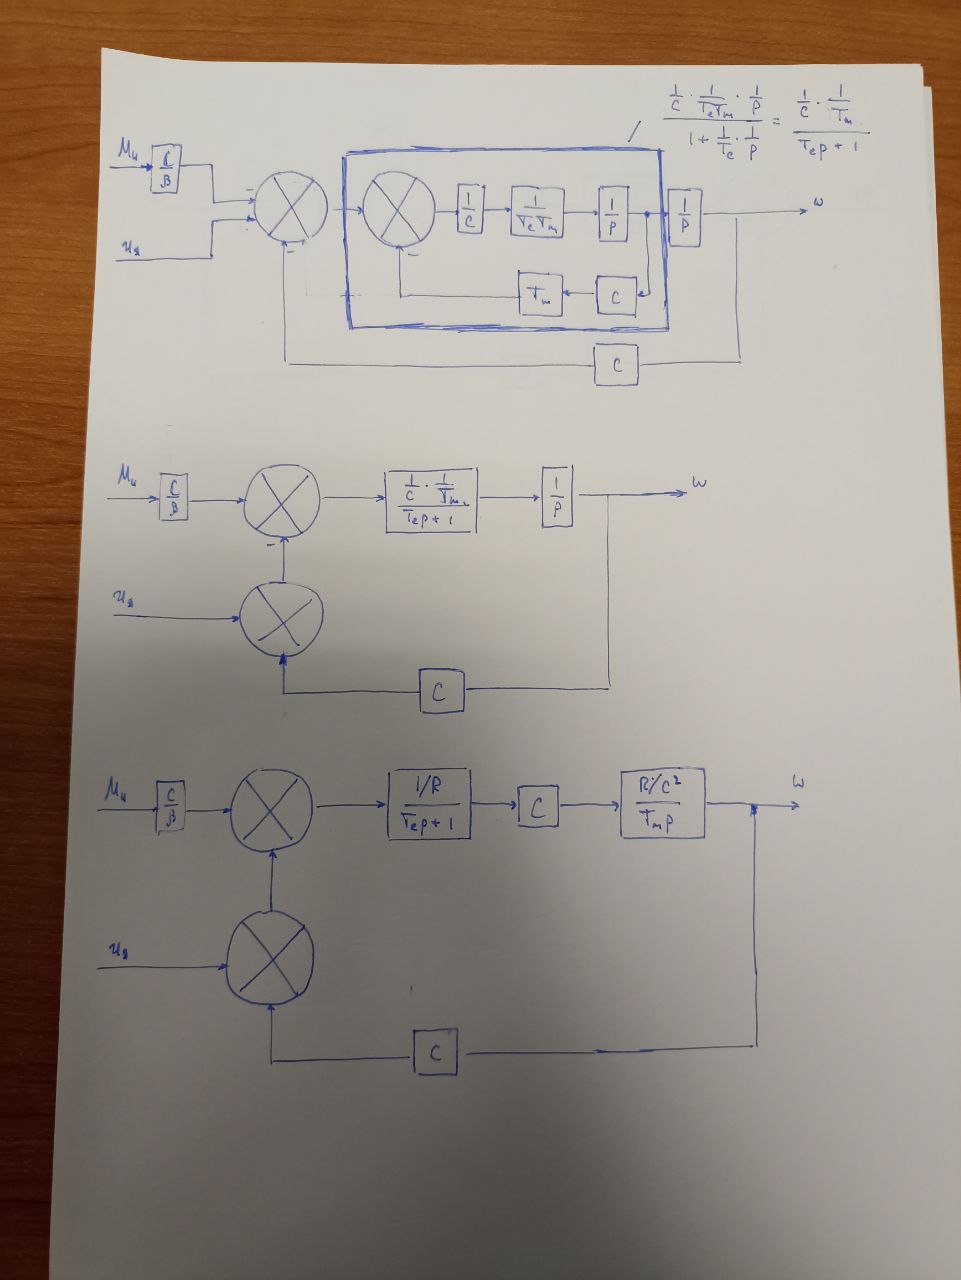 (1/C · 1/(TₑTₘ) · 1/P) / (1 + 1/Tₑ · 1/P) = (1/C · 1/Tₘ) / (Tₑp + 1)
Mн C/β 1/C 1/(TₑTₘ) 1/P 1/P ω
-
uя - -
Tₘ C
C
Mн C/β (1/C · 1/Tₘ)/(Tₑp + 1) 1/P ω
-
uя
C
Mн C/β (1/R)/(Tₑp + 1) C (R/C²)/(Tₘp) ω
uя
C